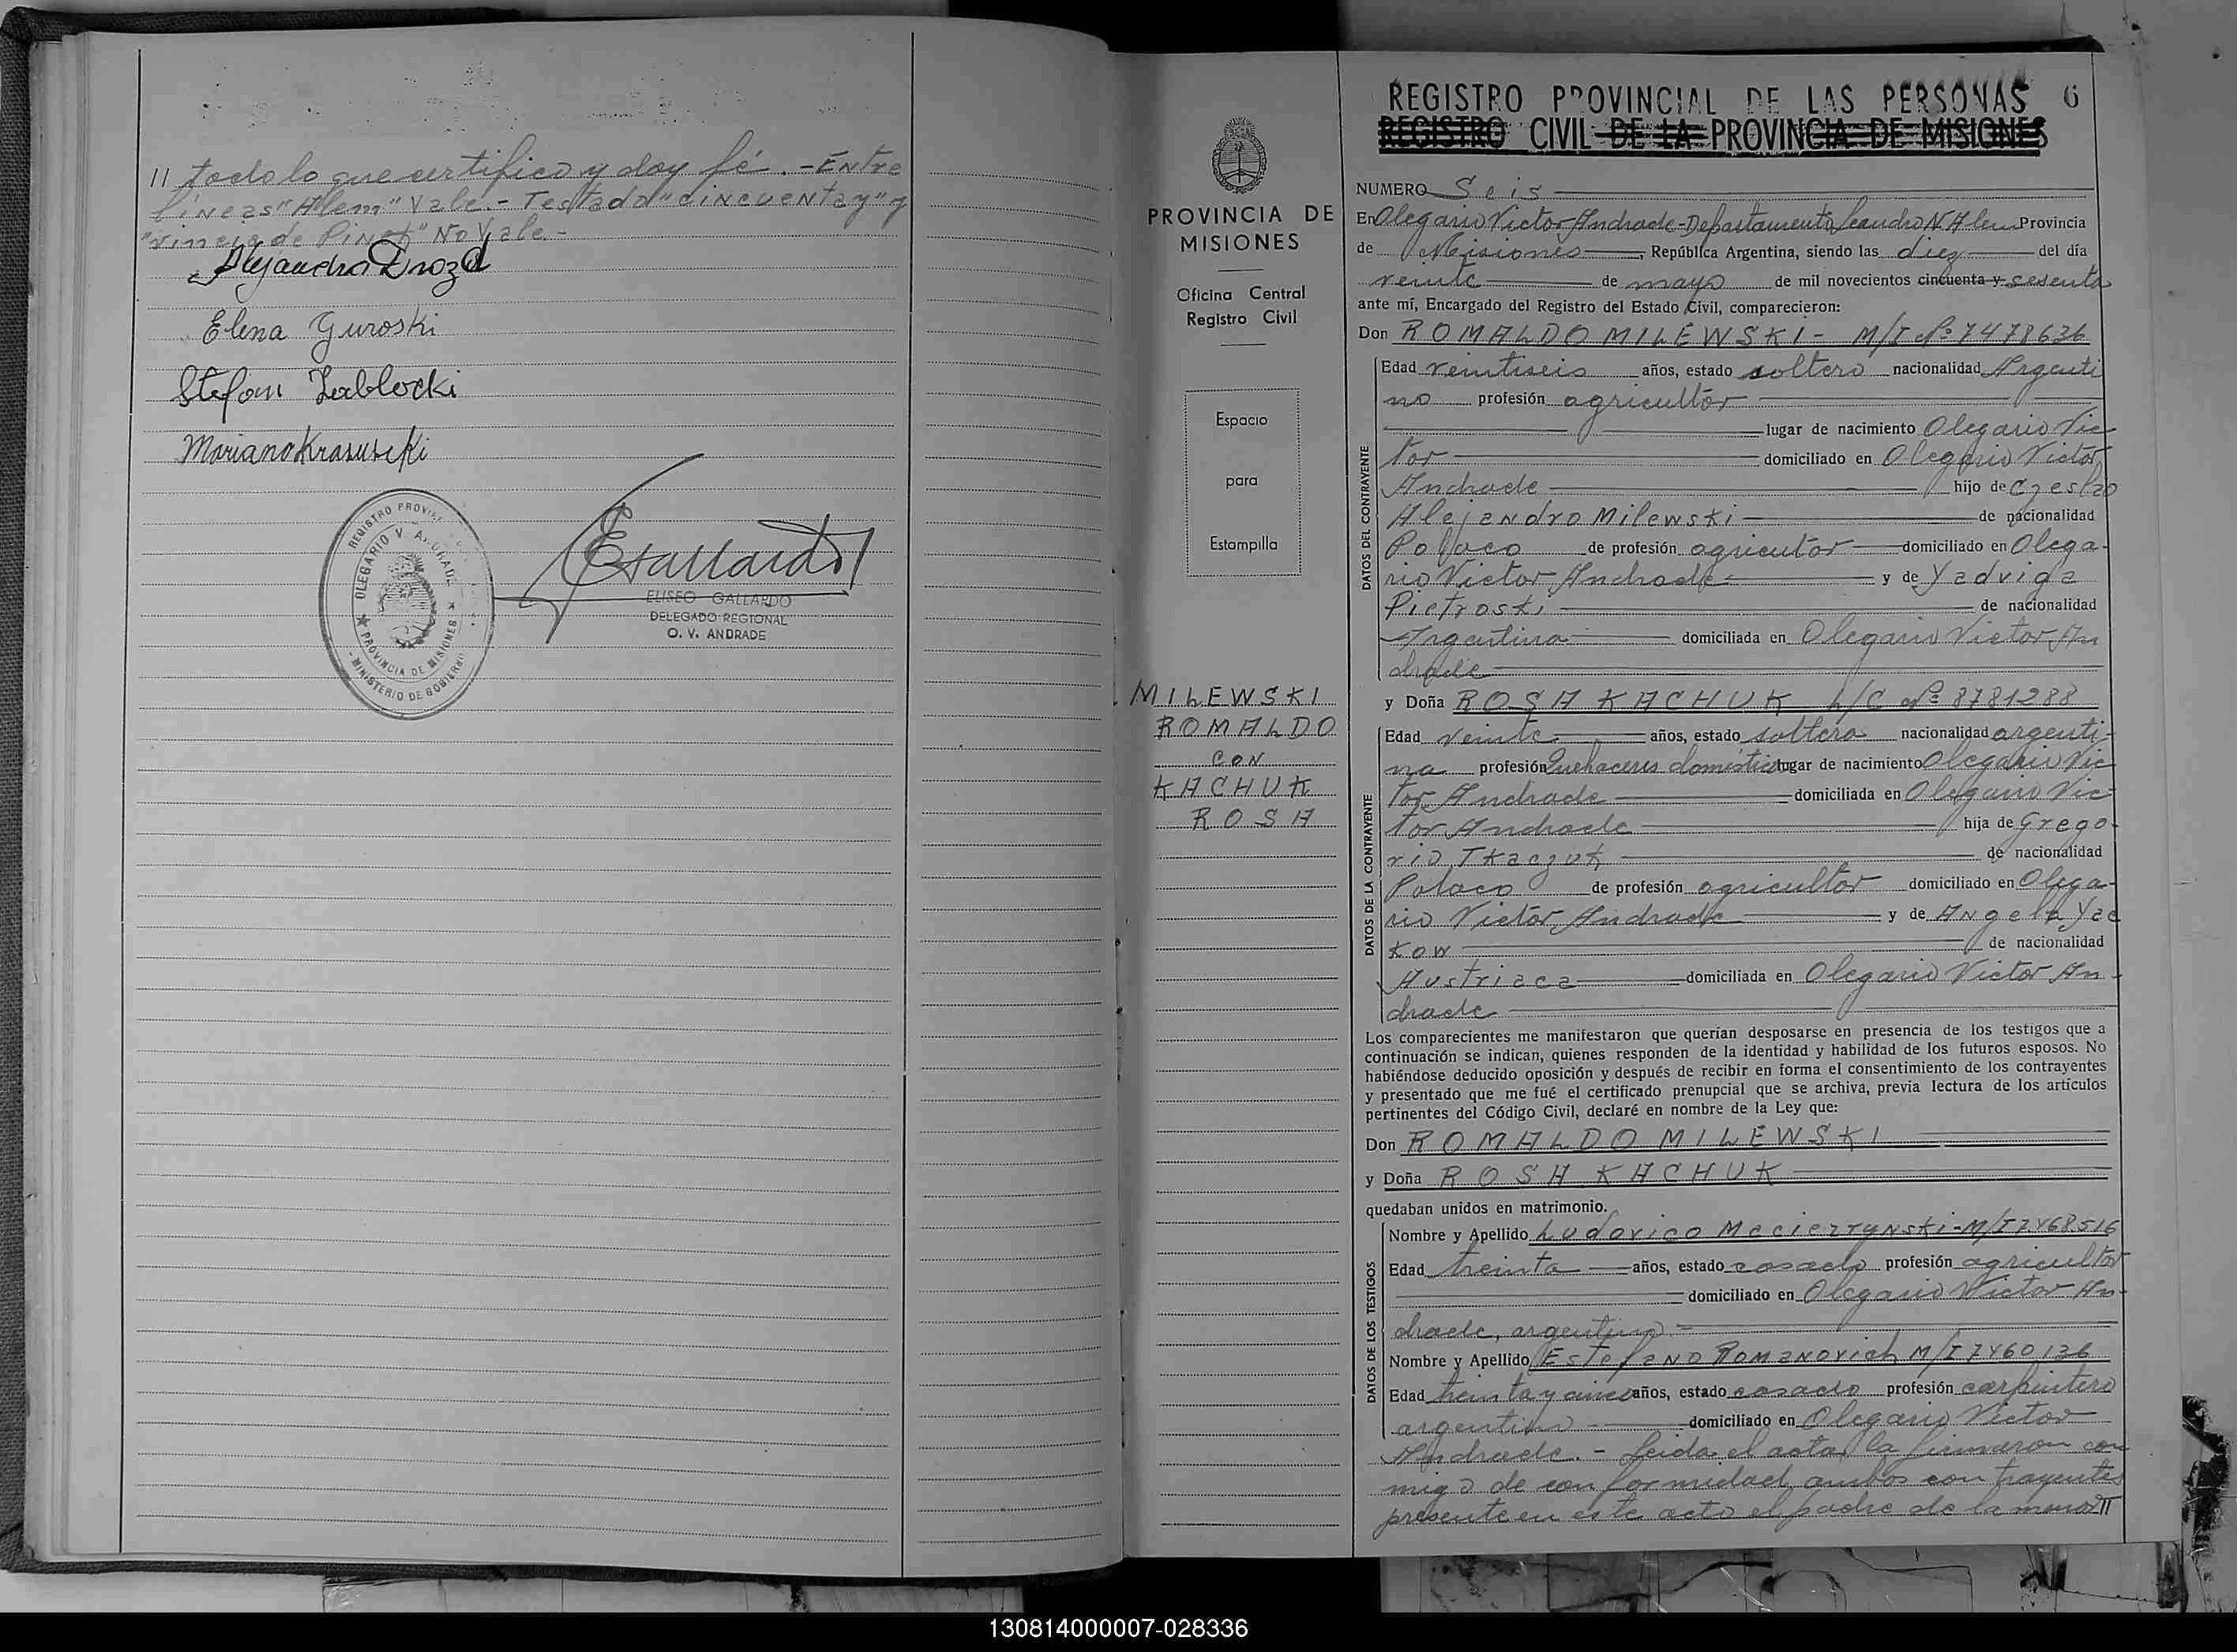 // todo lo que certifico y doy fé.- Entre
líneas "Alem" Vale.- Testado "cincuenta y" y
"vincia de Pinet" No Vale.-
Alejandro Drozd
Elena Guroski
Stefan Zablocki
Mariano Krasuseki
REGISTRO PROVI
OLEGARIO V. ANDRADE
PROVINCIA DE MISIONES
MINISTERIO DE GOBIERNO
EGallardo
ELISEO GALLARDO
DELEGADO REGIONAL
O. V. ANDRADE
PROVINCIA DE
MISIONES
Oficina Central
Registro Civil
Espacio
para
Estampilla
MILEWSKI
ROMALDO
CON
KACHUK
ROSA
REGISTRO PROVINCIAL DE LAS PERSONAS 6
REGISTRO CIVIL DE LA PROVINCIA DE MISIONES
NUMERO Seis
En Olegario Victor Andrade-Departamento Leandro N Alem Provincia
de Misiones, República Argentina, siendo las diez del día
veinte de mayo de mil novecientos cincuenta y sesenta
ante mí, Encargado del Registro del Estado Civil, comparecieron:
Don ROMALDO MILEWSKI - M/I Nº 7478636
DATOS DEL CONTRAYENTE
Edad veintiseis años, estado soltero nacionalidad Argenti
no profesión agricultor
lugar de nacimiento Olegario Vic
tor domiciliado en Olegario Victor
Andrade hijo de Czeslao
Alejandro Milewski de nacionalidad
Polaco de profesión agricutor domiciliado en Olega-
rio Victor Andrade y de Yadviga
Pietroski de nacionalidad
Argentina domiciliada en Olegario Victor An
drade
y Doña ROSA KACHUK L/C Nº 8781288
DATOS DE LA CONTRAYENTE
Edad veinte años, estado soltera nacionalidad argenti-
na profesión Quehaceres domésticos lugar de nacimiento Olegario Vic
tor Andrade domiciliada en Olegario Vic-
tor Andrade hija de Grego-
rio Tkaczuk de nacionalidad
Polaco de profesión agricultor domiciliado en Olega-
rio Victor Andrade y de Angela Yac
kow de nacionalidad
Austriaca domiciliada en Olegario Victor An-
drade
Los comparecientes me manifestaron que querían desposarse en presencia de los testigos que a
continuación se indican, quienes responden de la identidad y habilidad de los futuros esposos. No
habiéndose deducido oposición y después de recibir en forma el consentimiento de los contrayentes
y presentado que me fué el certificado prenupcial que se archiva, previa lectura de los artículos
pertinentes del Código Civil, declaré en nombre de la Ley que:
Don ROMALDO MILEWSKI
y Doña ROSA KACHUK
quedaban unidos en matrimonio.
DATOS DE LOS TESTIGOS
Nombre y Apellido Ludovico Macierzynski-M/I 7.468.516
Edad treinta años, estado casado profesión agricultor
domiciliado en Olegario Victor An-
drade, argentino.-
Nombre y Apellido Estefano Romanovich M/I 7460126
Edad treinta y cinco años, estado casado profesión carpintero
argentino domiciliado en Olegario Victor
Andrade.- Leida el acta la firmaron con
migo de conformidad ambos contrayentes
presente en este acto el padre de la menor //
130814000007-028336